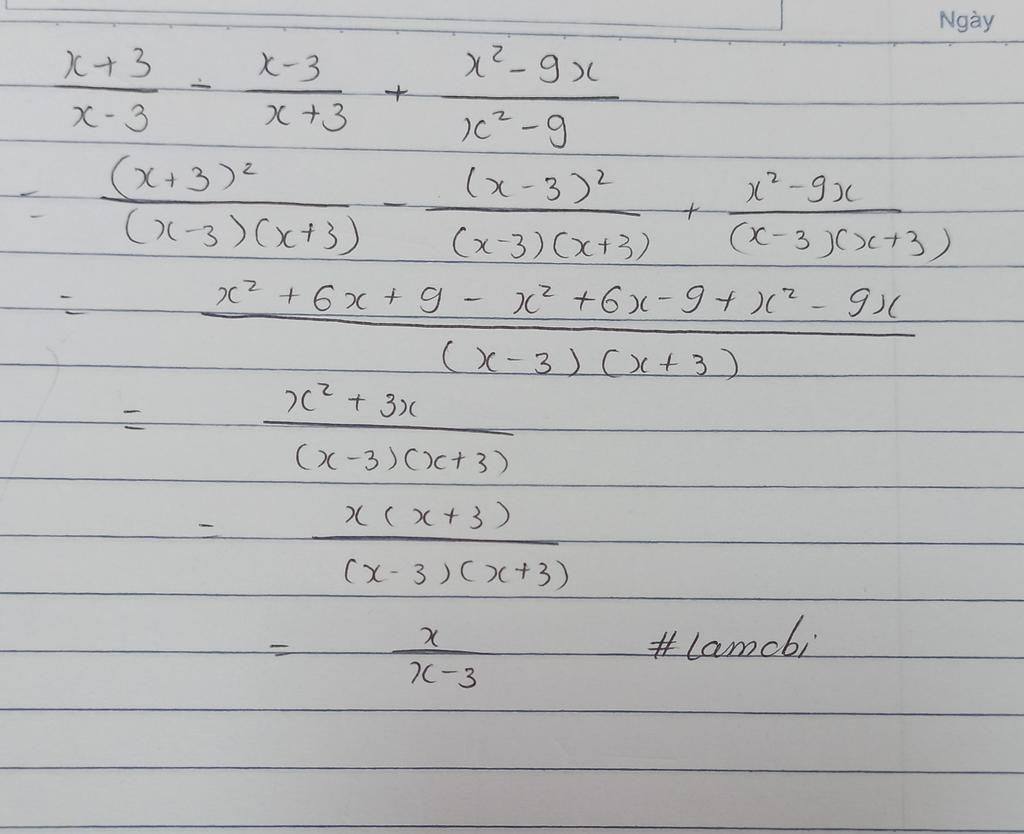 Ngày
\frac{x+3}{x-3} - \frac{x-3}{x+3} + \frac{x^2-9x}{x^2-9}
= \frac{(x+3)^2}{(x-3)(x+3)} - \frac{(x-3)^2}{(x-3)(x+3)} + \frac{x^2-9x}{(x-3)(x+3)}
= \frac{x^2+6x+9-x^2+6x-9+x^2-9x}{(x-3)(x+3)}
= \frac{x^2+3x}{(x-3)(x+3)}
= \frac{x(x+3)}{(x-3)(x+3)}
= \frac{x}{x-3} #lamcbi